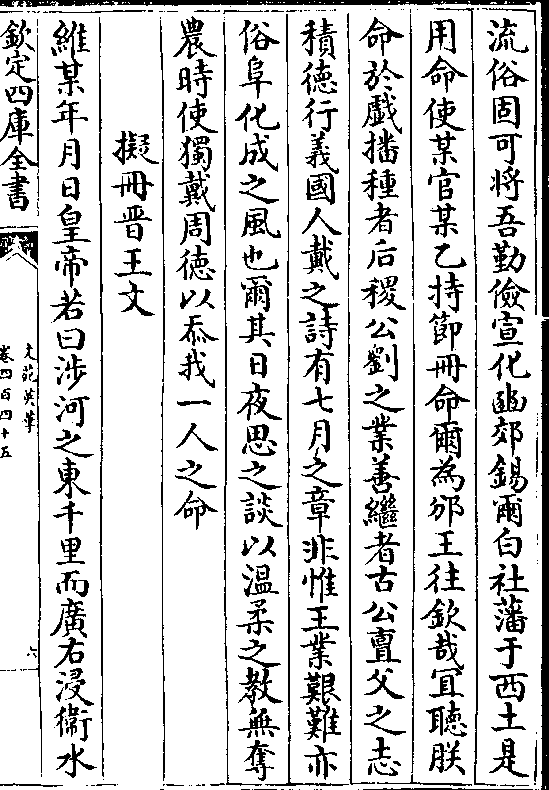 流俗固可將吾勤儉宣化豳郊錫爾白社藩于西土是
用命使某官某乙持節冊命爾為邠王往欽哉冝聽朕
命於戲播種者后稷公劉之業善繼者古公亶父之志
積德行義國人戴之詩有七月之章非惟王業艱難亦
俗阜化成之風也爾其日夜思之談以溫柔之教無奪
農時使獨戴周德以忝我一人之命
擬冊晋王文
維某年月日皇帝若曰涉河之東千里而廣右浸衞水
欽定四庫全書
文苑英華
卷四百四十五
六